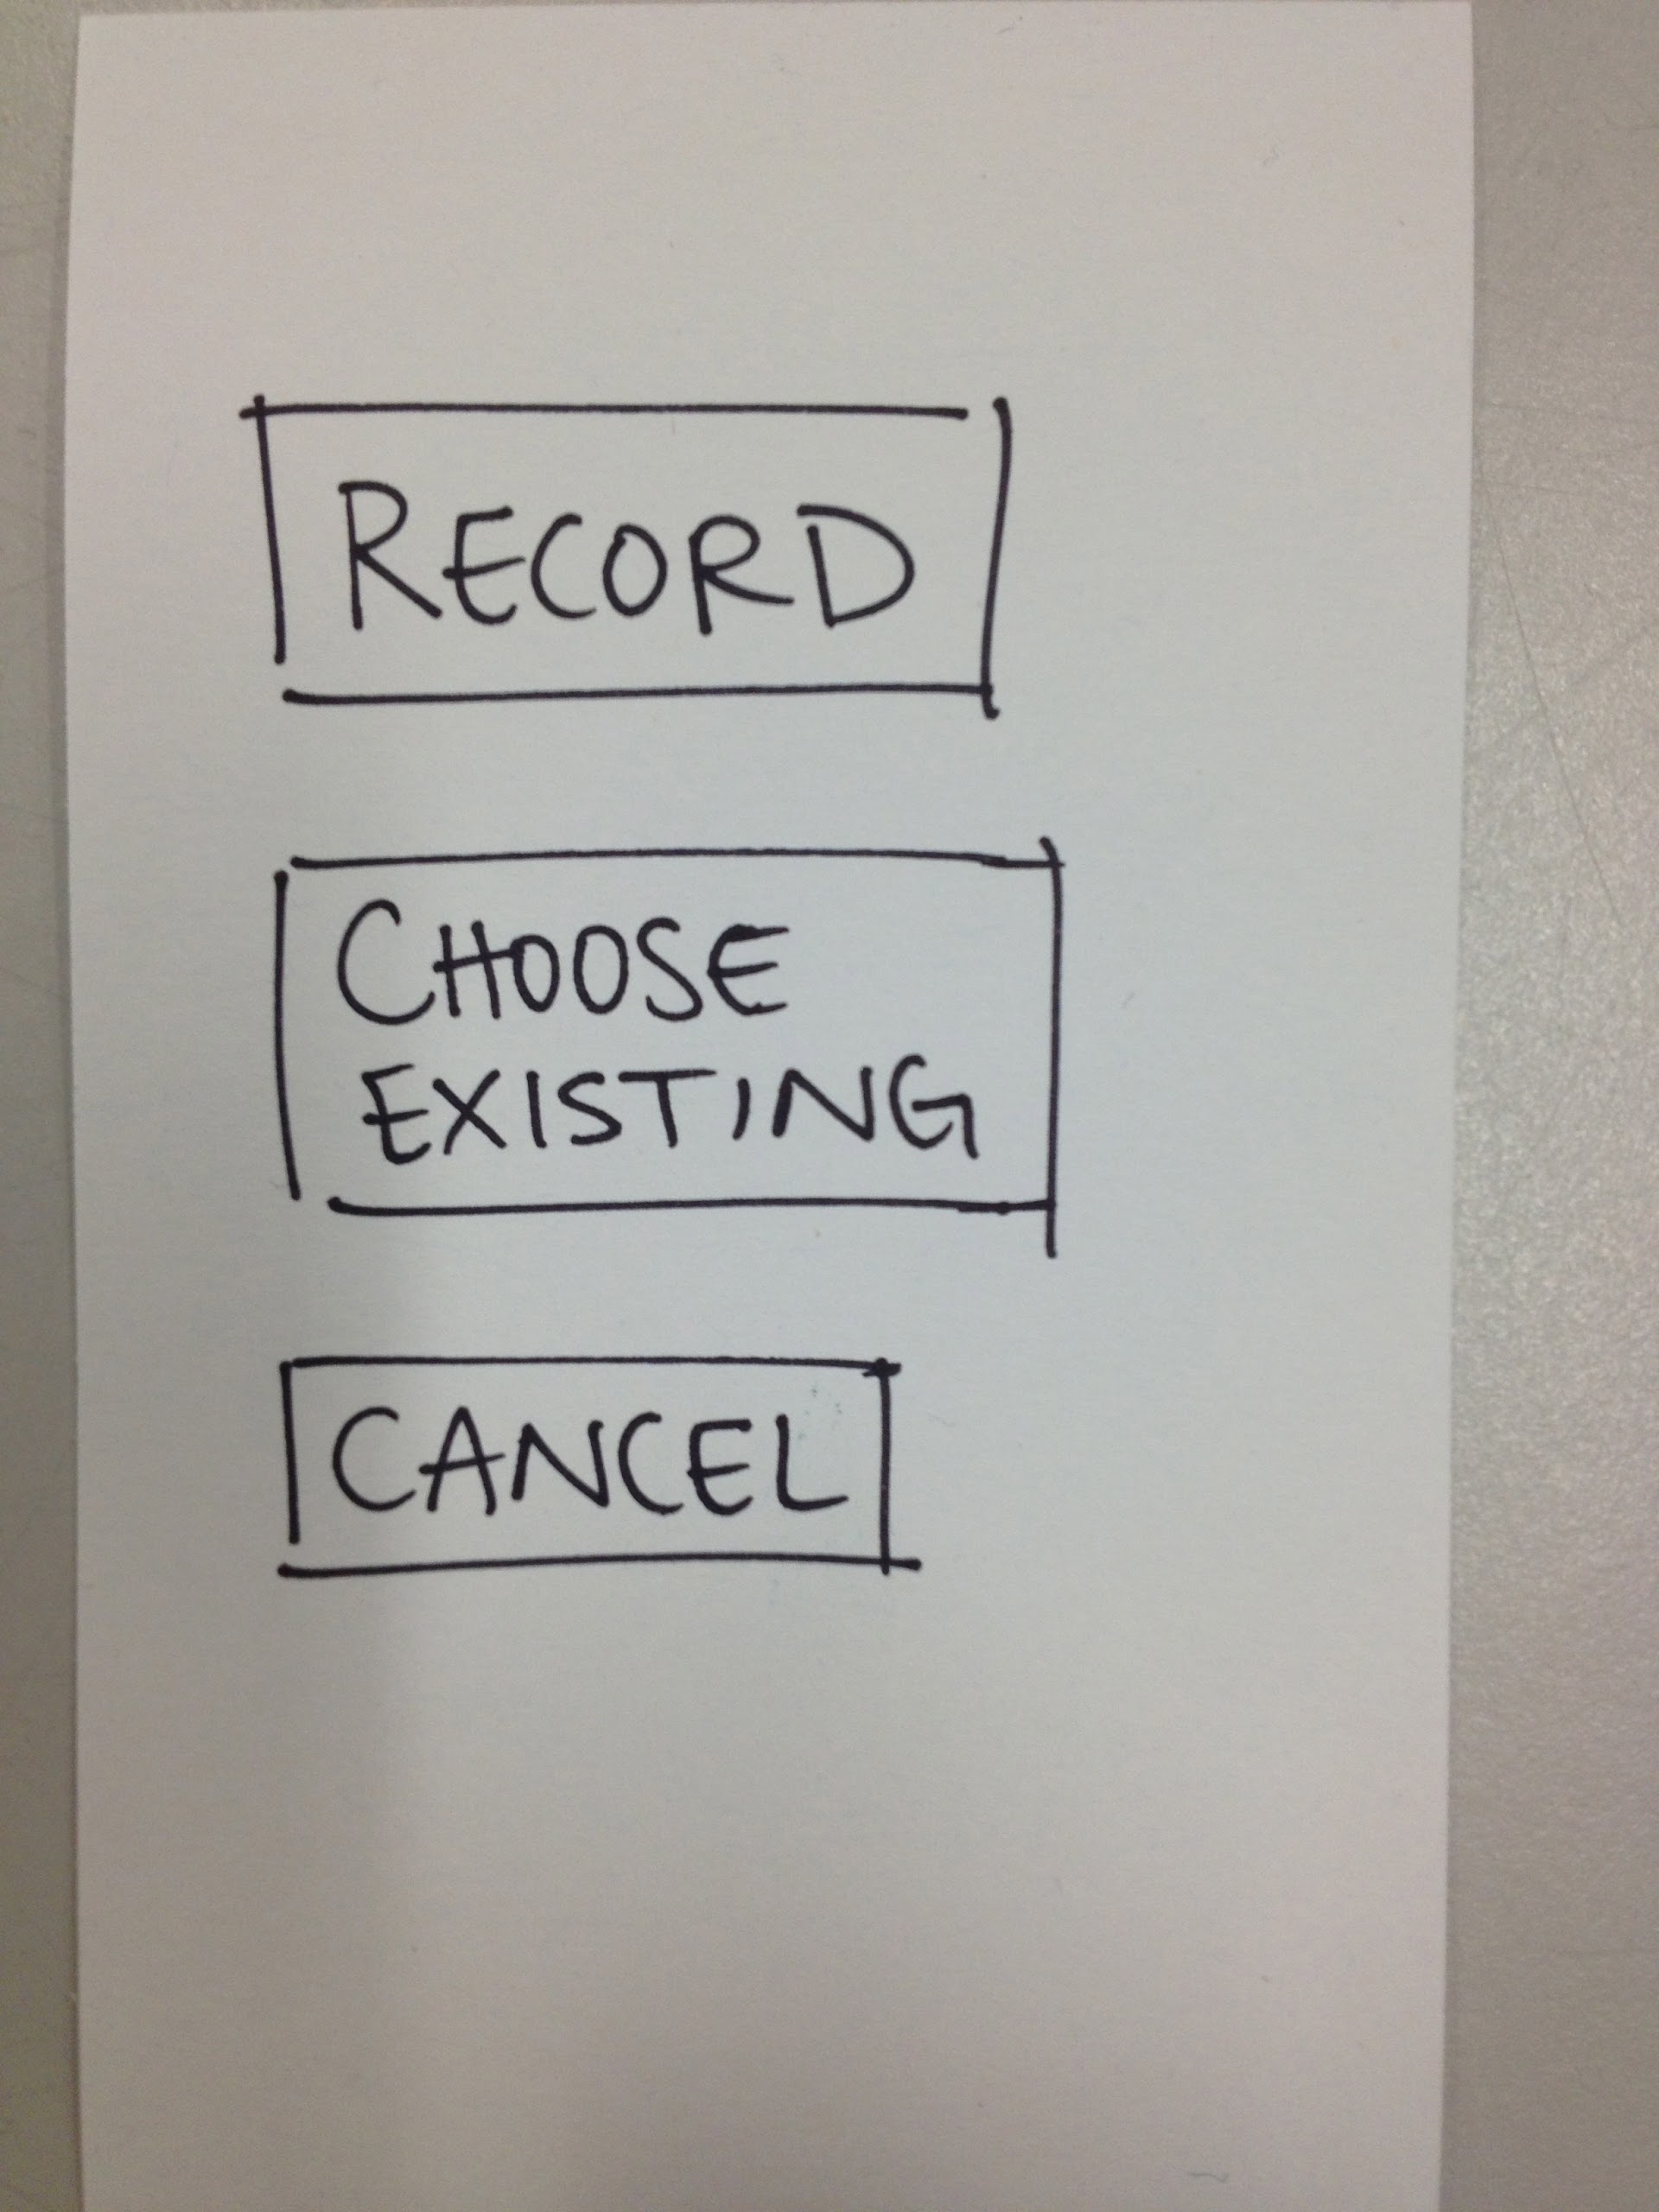 RECORD
CHOOSE
EXISTING
CANCEL